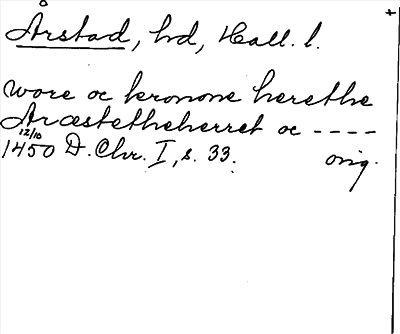 Årstad, hd, Hall. l.
wore oc kronone herethe
Aræstetheherret oc ----
12/10
1450 D. Chr. I, s. 33. orig.